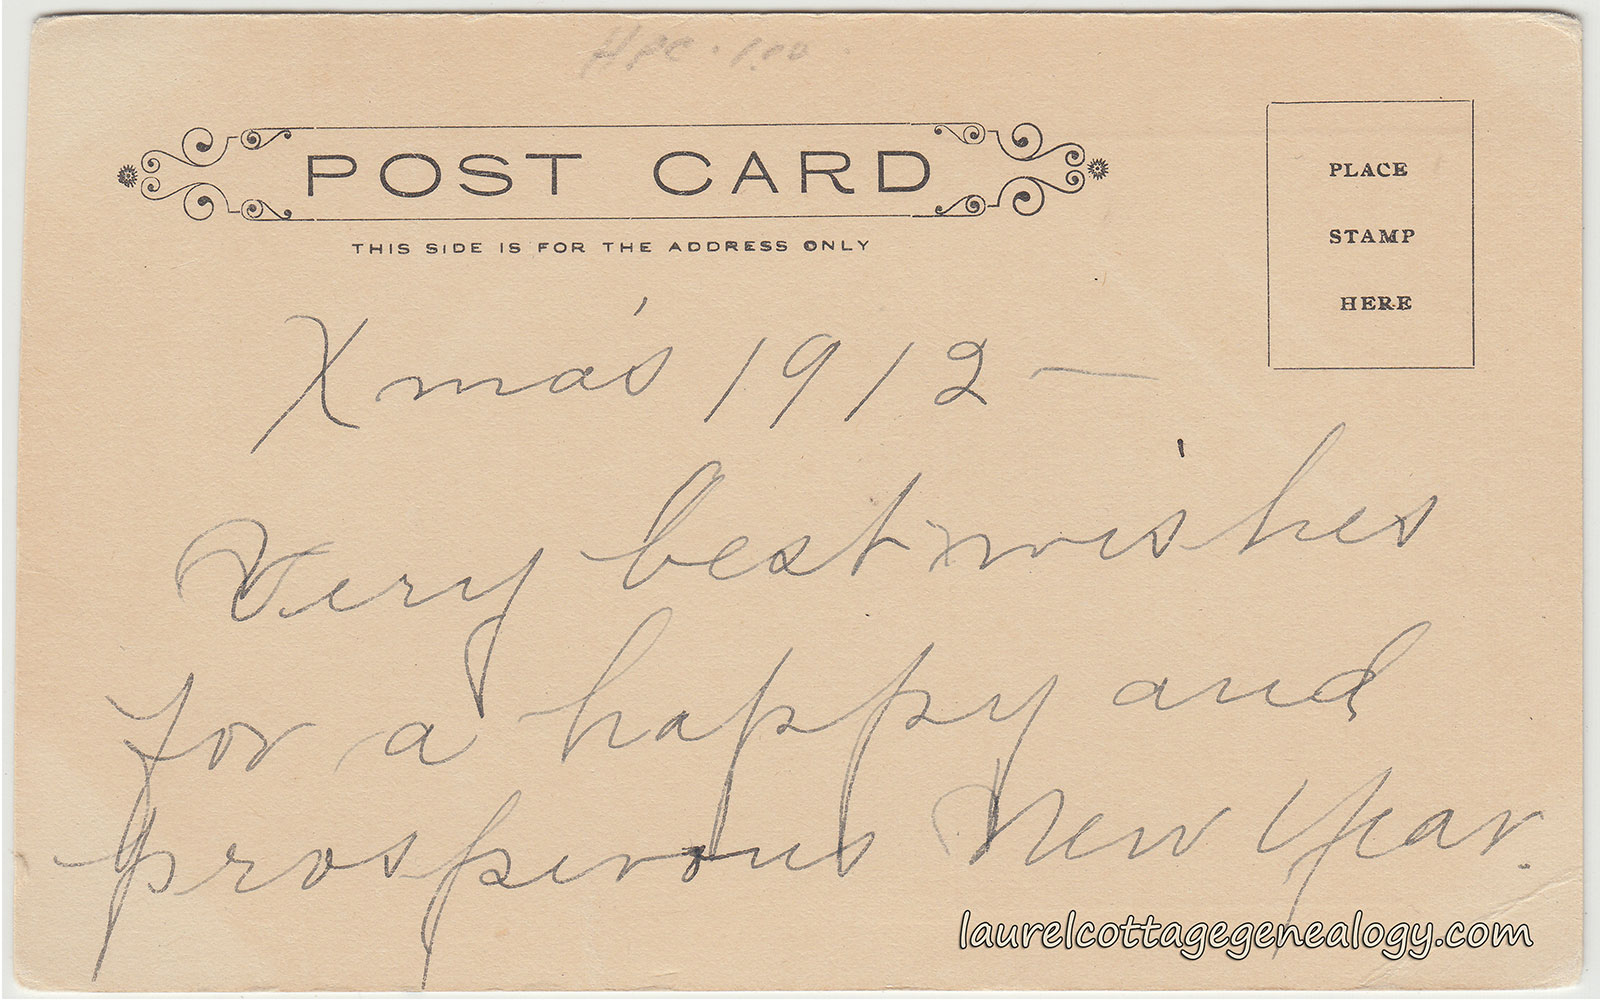 POST CARD
THIS SIDE IS FOR THE ADDRESS ONLY
PLACE
STAMP
HERE
Xma's 1912 —
Very best wishes
for a happy and
prosperous New Year.
laurelcottagegenealogy.com